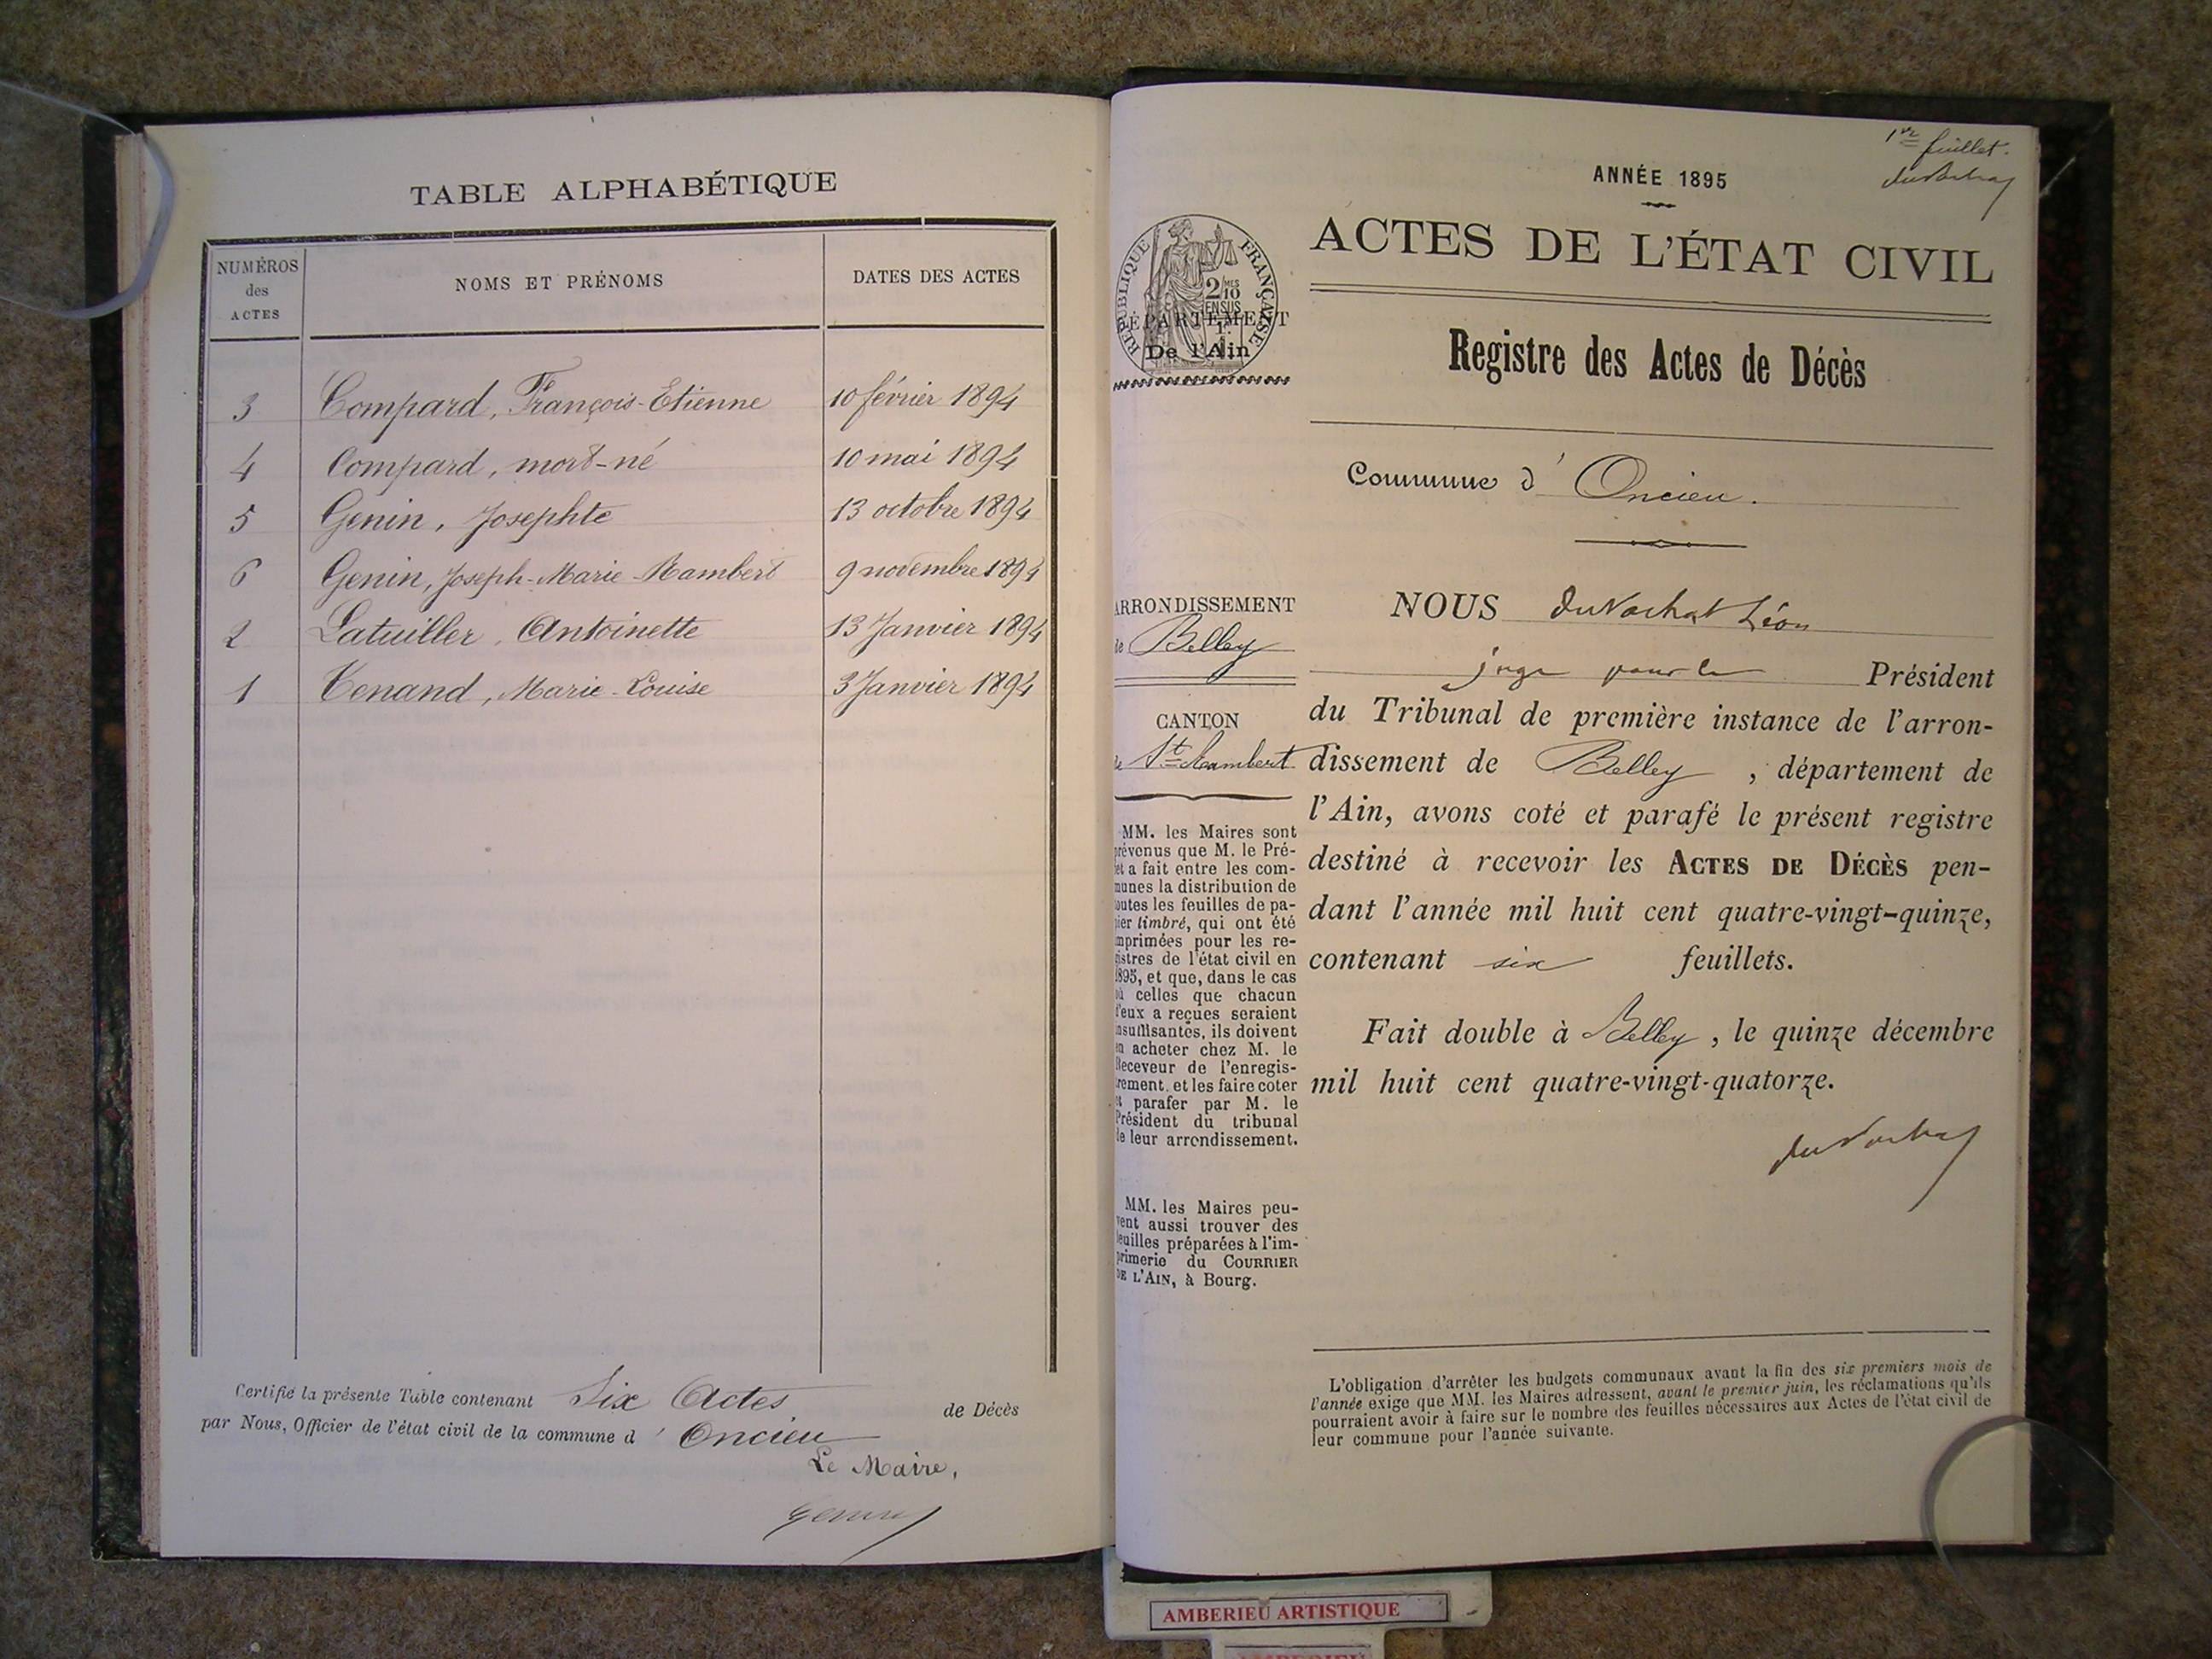 TABLE ALPHABÉTIQUE
NUMÉROS
des
ACTES
NOMS ET PRÉNOMS
DATES DES ACTES
3 Compard, François-Etienne 10 février 1894
4 Compard, mort-né 10 mai 1894
5 Genin, Josephte 13 octobre 1894
6 Genin, Joseph-Marie-Rambert 9 novembre 1894
2 Latuiller, Antoinette 13 Janvier 1894
1 Tenand, Marie-Louise 3 Janvier 1894
Certifié la présente Table contenant Six Actes de Décès
par Nous, Officier de l'état civil de la commune d' Oncieu
Le Maire,
1er feuillet.
ANNÉE 1895
ACTES DE L'ÉTAT CIVIL
RÉPUBLIQUE FRANÇAISE
2/10MES
EN SUS
DÉPARTEMENT
De l'Ain
Registre des Actes de Décès
Commune d' Oncieu.
ARRONDISSEMENT
de Belley
CANTON
de St Rambert
MM. les Maires sont
prévenus que M. le Pré-
fet a fait entre les com-
munes la distribution de
toutes les feuilles de pa-
pier timbré, qui ont été
imprimées pour les re-
gistres de l'état civil en
1895, et que, dans le cas
où celles que chacun
d'eux a reçues seraient
insuffisantes, ils doivent
en acheter chez M. le
Receveur de l'enregis-
trement, et les faire coter
et parafer par M. le
Président du tribunal
de leur arrondissement.
MM. les Maires peu-
vent aussi trouver des
feuilles préparées à l'im-
primerie du COURRIER
DE L'AIN, à Bourg.
NOUS du Vachat Léon
juge pour le Président
du Tribunal de première instance de l'arron-
dissement de Belley, département de
l'Ain, avons coté et parafé le présent registre
destiné à recevoir les ACTES DE DÉCÈS pen-
dant l'année mil huit cent quatre-vingt-quinze,
contenant six feuillets.
Fait double à Belley, le quinze décembre
mil huit cent quatre-vingt-quatorze.
L'obligation d'arrêter les budgets communaux avant la fin des six premiers mois de
l'année exige que MM. les Maires adressent, avant le premier juin, les réclamations qu'ils
pourraient avoir à faire sur le nombre des feuilles nécessaires aux Actes de l'état civil de
leur commune pour l'année suivante.
AMBERIEU ARTISTIQUE
AMBERIEU